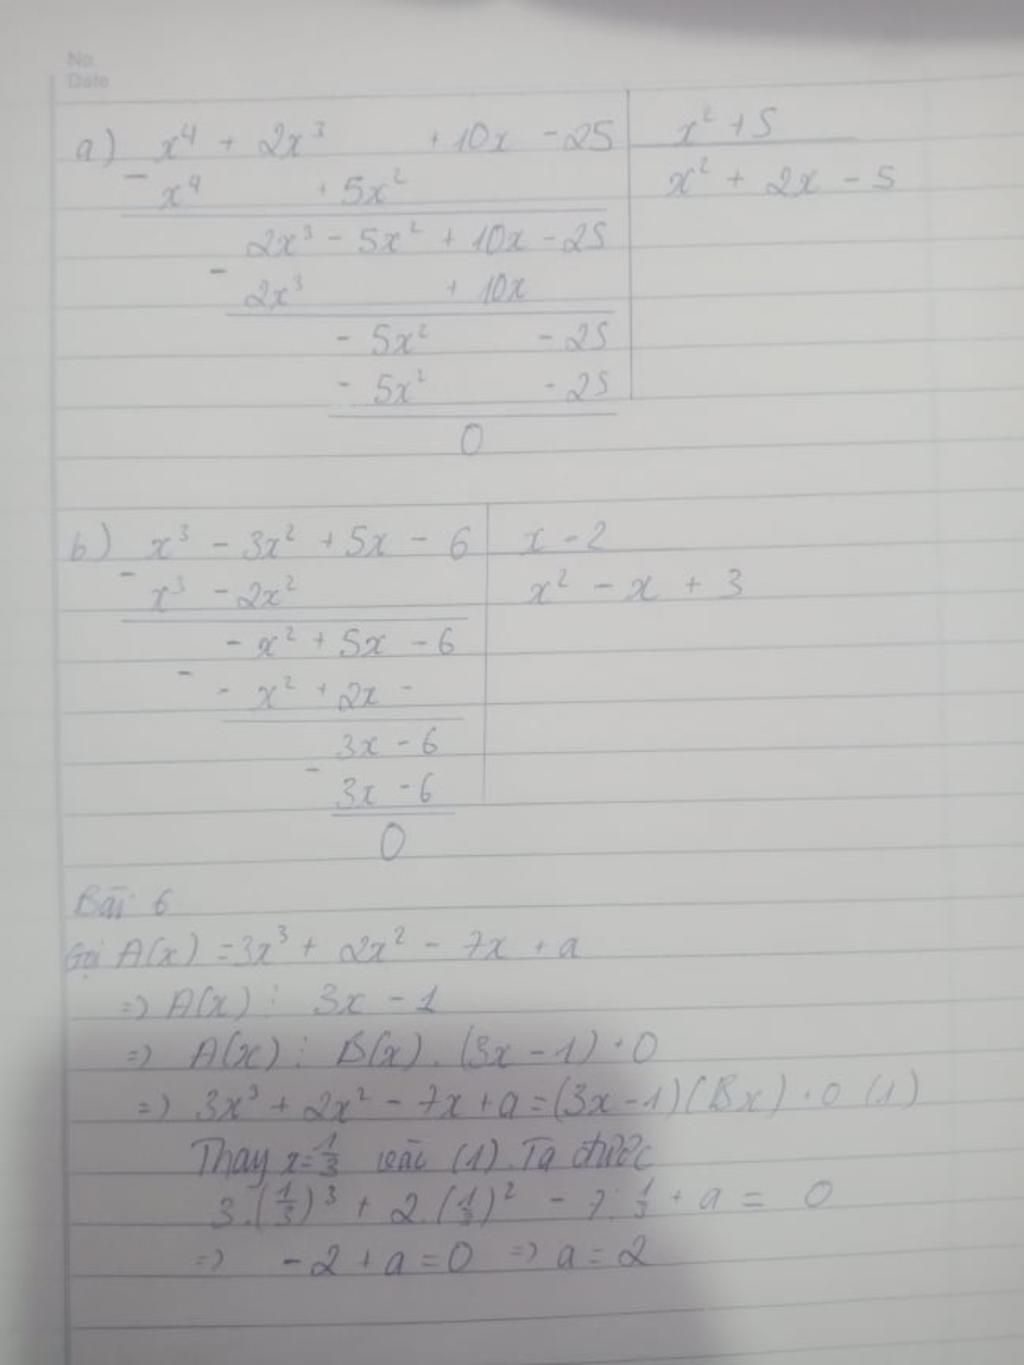 No
Date
a) x⁴ + 2x³ + 10x - 25 | x² + 5
- x⁴ + 5x² | x² + 2x - 5
2x³ - 5x² + 10x - 25
- 2x³ + 10x
- 5x² - 25
- 5x² - 25
0
b) x³ - 3x² + 5x - 6 | x - 2
- x³ - 2x² | x² - x + 3
- x² + 5x - 6
- - x² + 2x -
3x - 6
- 3x - 6
0
Bài 6
Gọi A(x) = 3x³ + 2x² - 7x + a
=> A(x) ⋮ 3x - 1
=> A(x) ⋮ B(x) . (3x - 1) + 0
=> 3x³ + 2x² - 7x + a = (3x - 1)(Bx) + 0 (1)
Thay x = 1/3 vào (1). Ta được
3.(1/3)³ + 2.(1/3)² - 7.1/3 + a = 0
=> - 2 + a = 0 => a = 2